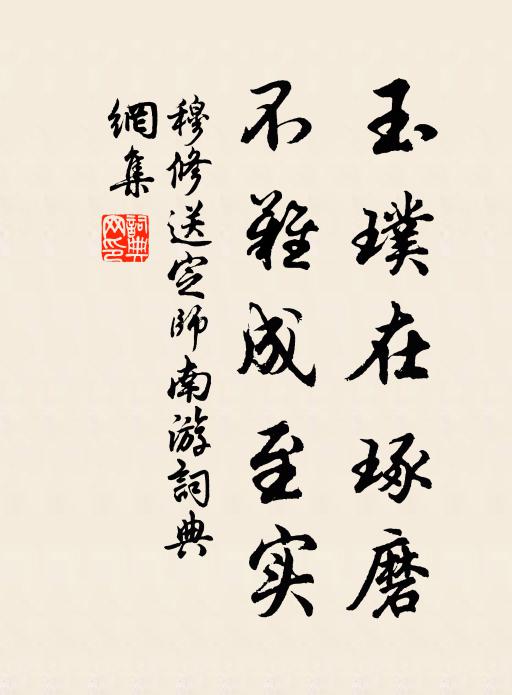 玉璞在琢磨
不难成至实
穆修送定師南游詞典
網集
詞典
网印